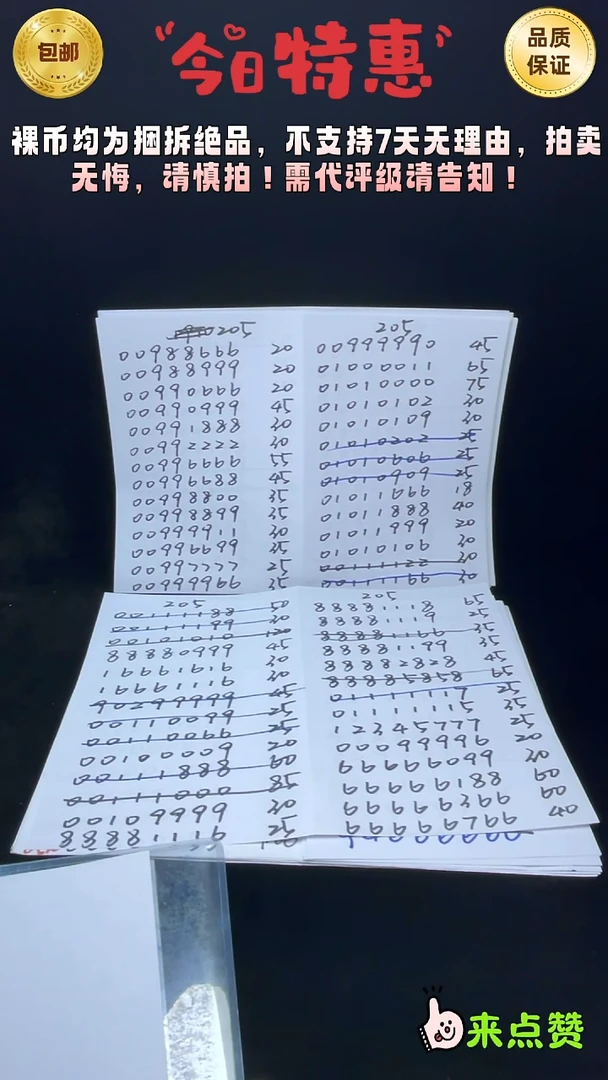 包邮
今日特惠
品质
保证
裸币均为捆拆绝品，不支持7天无理由，拍卖
无悔，请慎拍！需代评级请告知！
205
00988666 20
00988999 20
00990666 20
00990999 45
00991888 30
00992222 30
00996666 55
00996688 45
00998800 35
00998899 35
00999911 30
00996699 35
00997777 25
00999966 35
205
00999990 45
01000011 65
01010000 75
01010102 30
01010109 30
01010202 25
01010606 25
01010909 25
01011666 18
01011888 40
01011999 20
01010106 30
00111122 30
00111166 30
205
00111188 50
00111199 30
00101010 120
88880999 45
16661616 30
16661116 30
90299999 45
00110099 25
00110066 25
00100009 20
00111888 60
00111000 85
00109999 30
88881116 25
100
205
88881118 65
88881119 25
88881166 35
88881199 35
88882828 45
88885858 65
01111117 25
01111115 35
12345777 25
00099996 20
66666099 30
66666188 60
66666366 60
66666766 40
来点赞